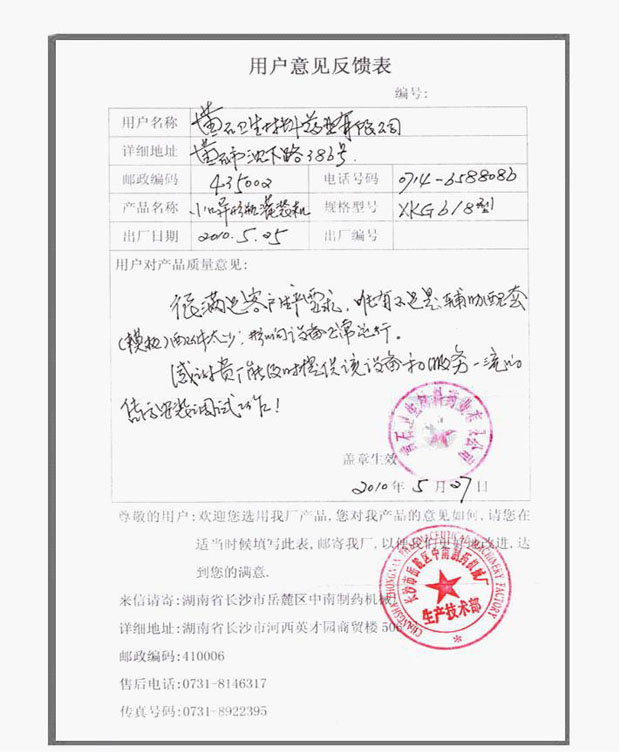 用户意见反馈表
编号:
用户名称 黄石卫生材料药业有限公司
详细地址 黄石市沈下路386号.
邮政编码 435002 电话号码 0714-6588086
产品名称 小口异形瓶灌装机 规格型号 YKG6/8型
出厂日期 2010.5.25 出厂编号
用户对产品质量意见:
很满足客户生产需求, 唯有不足是辅助配套
(模板)配件太少. 影响设备正常运行。
感谢贵厂能及时提供该设备和服务一流的
安装调试工作!
黄石卫生材料药业有限公司
盖章生效
2010年5月27日
尊敬的用户:欢迎您选用我厂产品,您对我产品的意见如何,请您在
适当时候填写此表,邮寄我厂,以便我们更好地改进,达
到您的满意.
来信请寄:湖南省长沙市岳麓区中南制药机械
详细地址:湖南省长沙市河西英才园商贸楼506
邮政编码:410006
售后电话:0731-8146317
传真号码:0731-8922395
CHANGSHA ZHONGNAN PHARMACEUTICAL MACHINERY FACTORY
长沙市岳麓区中南制药机械厂
生产技术部